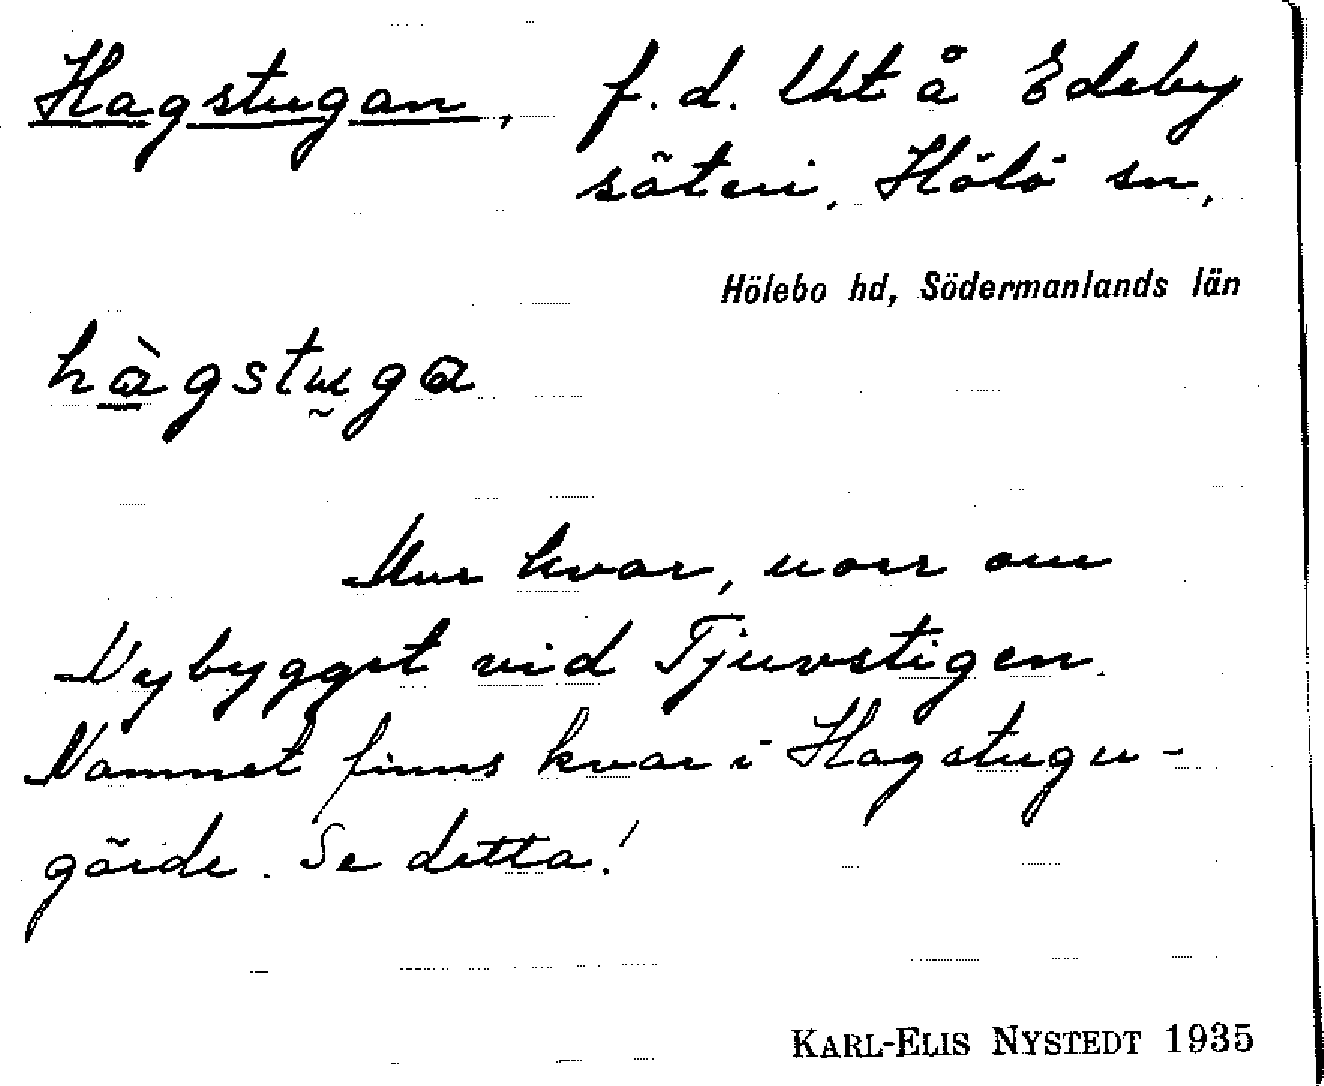 Hagstugan, f.d. lht å Edeby
säteri, Hölö sn,
Hölebo hd, Södermanlands län
hàgstuga
Mur kvar, norr om
Nybygget vid Tjuvstigen.
Namnet finns kvar i Hagstugu-
gärde. Se detta!
KARL-ELIS NYSTEDT 1935